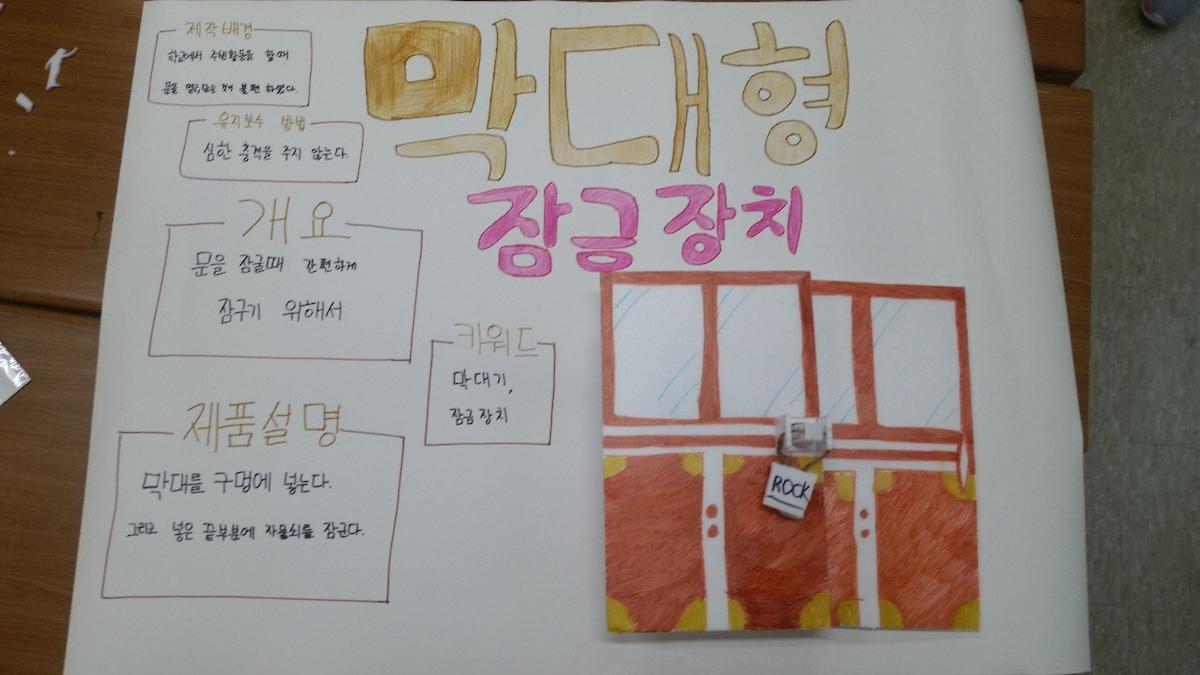 제작배경
학교에서 주변활동을 할때
문을 열고,닫는 것에 불편 하였다.
유지보수 방법
심한 충격을 주지 않는다.
막대형
잠금장치
개요
문을 잠굴때 간편하게
잠구기 위해서
키워드
막대기,
잠금장치
제품설명
막대를 구멍에 넣는다.
그리고 넣은 끝부분에 자물쇠를 잠근다.
ROCK